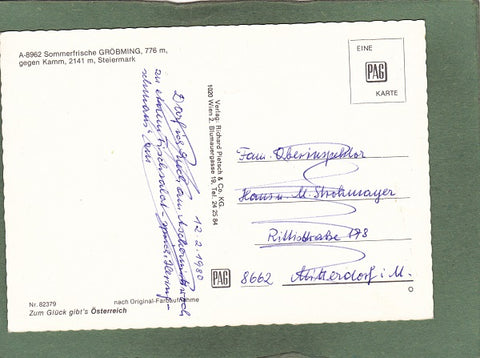 A-8962 Sommerfrische GRÖBMING, 776 m,
gegen Kamm, 2141 m, Steiermark
12.2.1980
Darf ich Euch am
zu einem Fischsalat-
Verlag: Richard Pietsch & Co. KG.
1020 Wien 2, Blumauergasse 19, Tel. 24 25 84
EINE
PAG
KARTE
Fam. Oberinspektor
Hans u. M. Strohmayer
Rillistraße 178
8662 Mitterdorf i. M.
PAG
Nr. 82379
nach Original-Farbaufnahme
Zum Glück gibt's Österreich